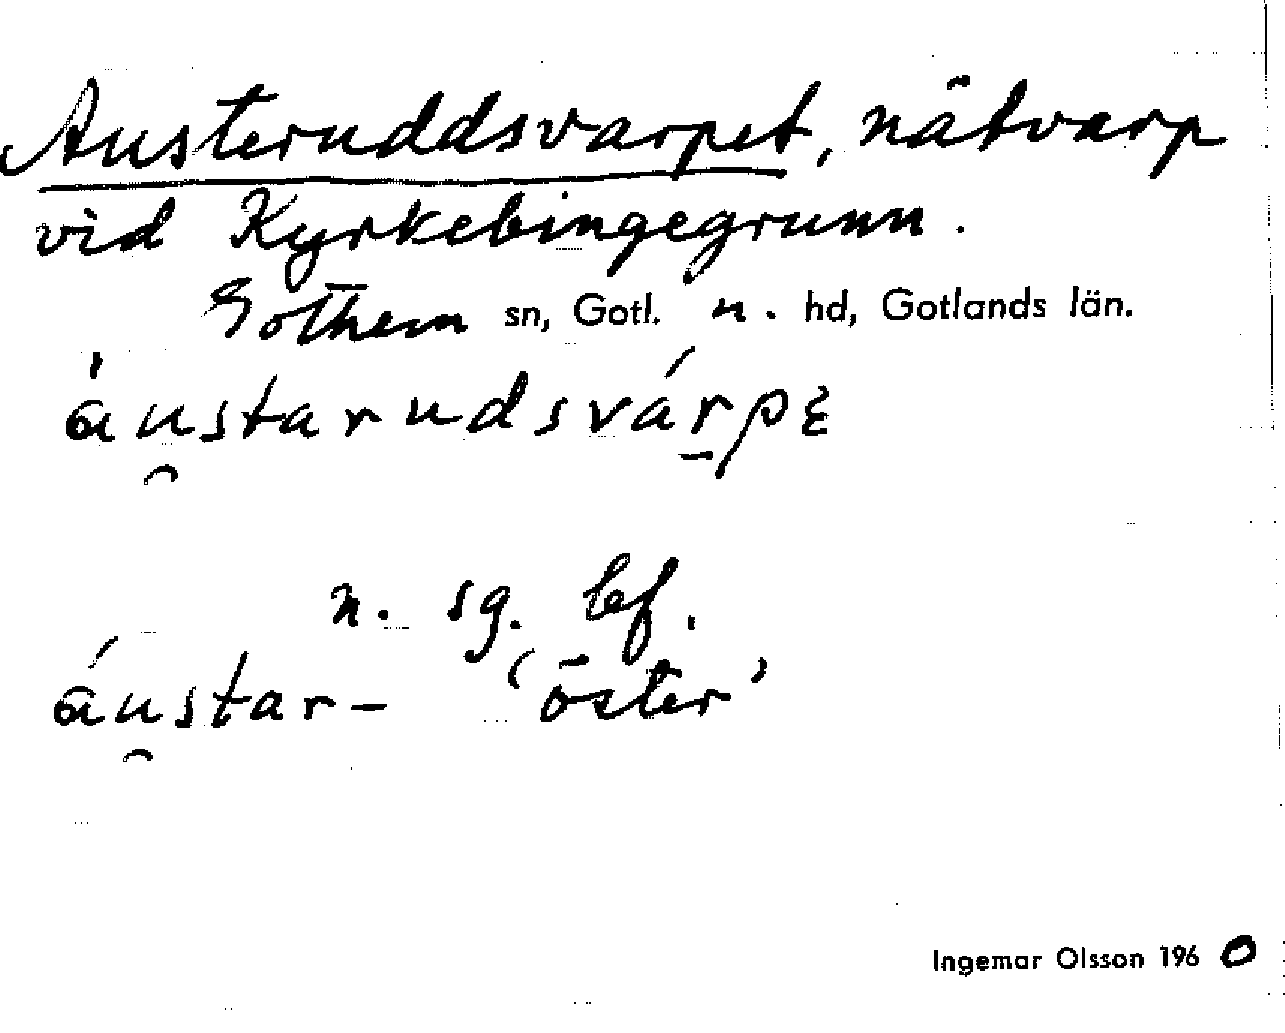 Austeruddsvarpet, nätvarp
vid Kyrkebingegrunn.
Gothem sn, Gotl. n. hd, Gotlands län.
áu̯starudsvár̠pε
n. sg. bf.
áu̯star- ‘öster’
Ingemar Olsson 1960